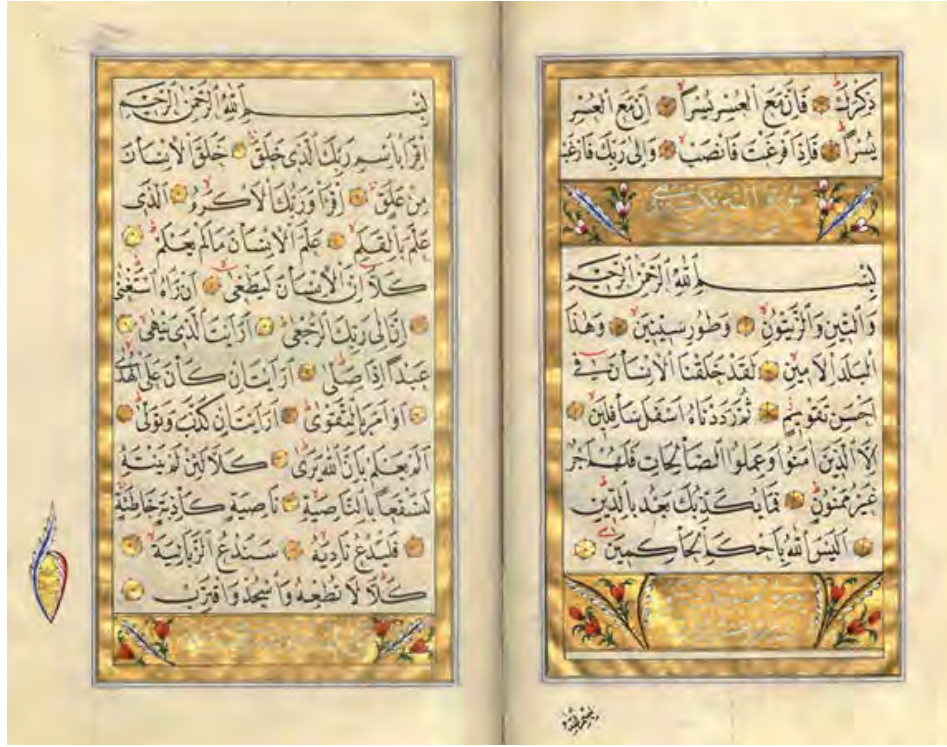 ذِكْرَكَ فَاِنَّ مَعَ الْعُسْرِ يُسْرًا اِنَّ مَعَ الْعُسْرِ
يُسْرًا فَاِذَا فَرَغْتَ فَانْصَبْ وَاِلٰى رَبِّكَ فَارْغَبْ
بِسْمِ اللهِ الرَّحْمٰنِ الرَّحِيمِ
وَالتِّينِ وَالزَّيْتُونِ وَطُورِ سِينِينَ وَهٰذَا
الْبَلَدِ الْاَمِينِ لَقَدْ خَلَقْنَا الْاِنْسَانَ فِى
اَحْسَنِ تَقْوِيمٍ ثُمَّ رَدَدْنَاهُ اَسْفَلَ سَافِلِينَ
اِلَّا الَّذِينَ اٰمَنُوا وَعَمِلُوا الصَّالِحَاتِ فَلَهُمْ اَجْرٌ
غَيْرُ مَمْنُونٍ فَمَا يُكَذِّبُكَ بَعْدُ بِالدِّينِ
اَلَيْسَ اللهُ بِاَحْكَمِ الْحَاكِمِينَ
بِسْمِ اللهِ الرَّحْمٰنِ الرَّحِيمِ
اِقْرَأْ بِاسْمِ رَبِّكَ الَّذِى خَلَقَ خَلَقَ الْاِنْسَانَ
مِنْ عَلَقٍ اِقْرَأْ وَرَبُّكَ الْاَكْرَمُ اَلَّذِى
عَلَّمَ بِالْقَلَمِ عَلَّمَ الْاِنْسَانَ مَا لَمْ يَعْلَمْ
كَلَّا اِنَّ الْاِنْسَانَ لَيَطْغٰى اَنْ رَاٰهُ اسْتَغْنٰى
اِنَّ اِلٰى رَبِّكَ الرُّجْعٰى اَرَاَيْتَ الَّذِى يَنْهٰى
عَبْدًا اِذَا صَلّٰى اَرَاَيْتَ اِنْ كَانَ عَلَى الْهُدٰى
اَوْ اَمَرَ بِالتَّقْوٰى اَرَاَيْتَ اِنْ كَذَّبَ وَتَوَلّٰى
اَلَمْ يَعْلَمْ بِاَنَّ اللهَ يَرٰى كَلَّا لَئِنْ لَمْ يَنْتَهِ
لَنَسْفَعًا بِالنَّاصِيَةِ نَاصِيَةٍ كَاذِبَةٍ خَاطِئَةٍ
فَلْيَدْعُ نَادِيَهُ سَنَدْعُ الزَّبَانِيَةَ
كَلَّا لَا تُطِعْهُ وَاسْجُدْ وَاقْتَرِبْ